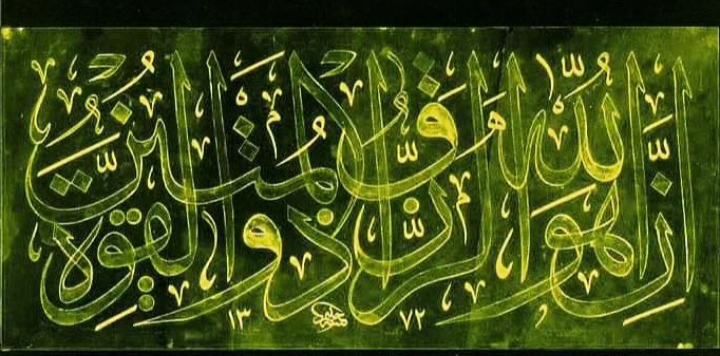 اِنَّ اللّٰهَ هُوَ الرَّزَّاقُ ذُو الْقُوَّةِ الْمَتِينُ
١٣٧٢